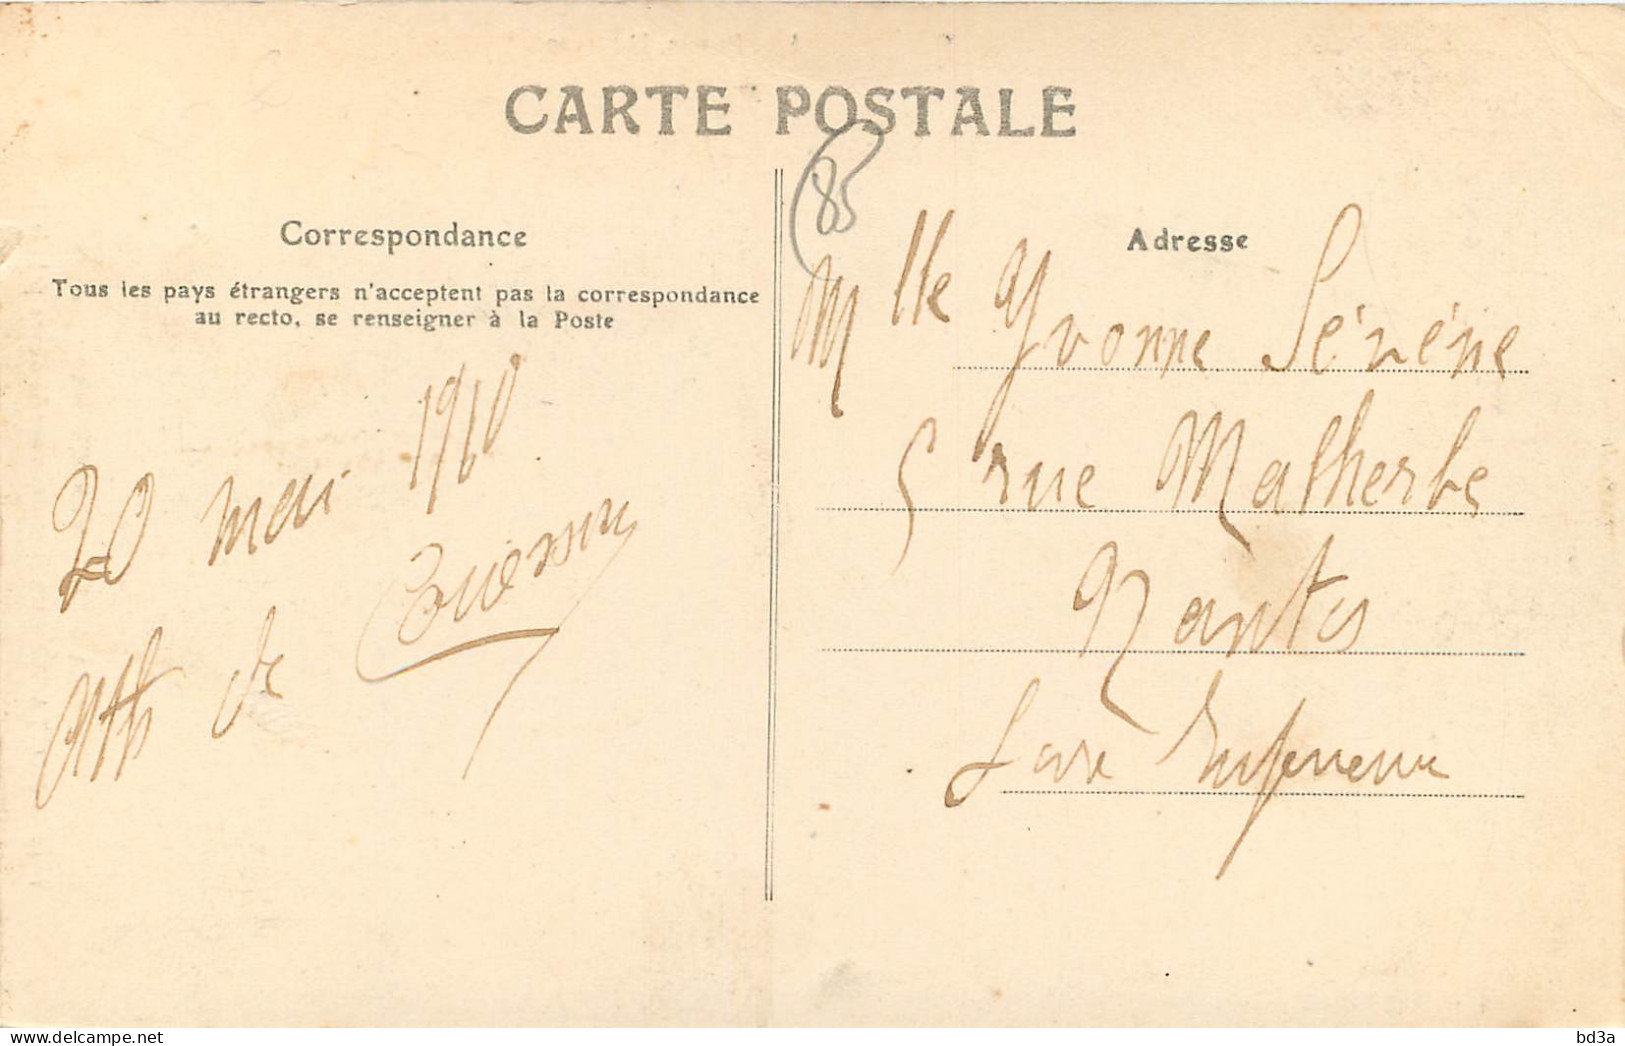 CARTE POSTALE
85
Correspondance
Tous les pays étrangers n'acceptent pas la correspondance
au recto, se renseigner à la Poste
20 mai 1910
de
Adresse
Mlle Yvonne Sérène
5 rue Malherbe
Nantes
Loire Inférieure
delcampe.net
bd3a